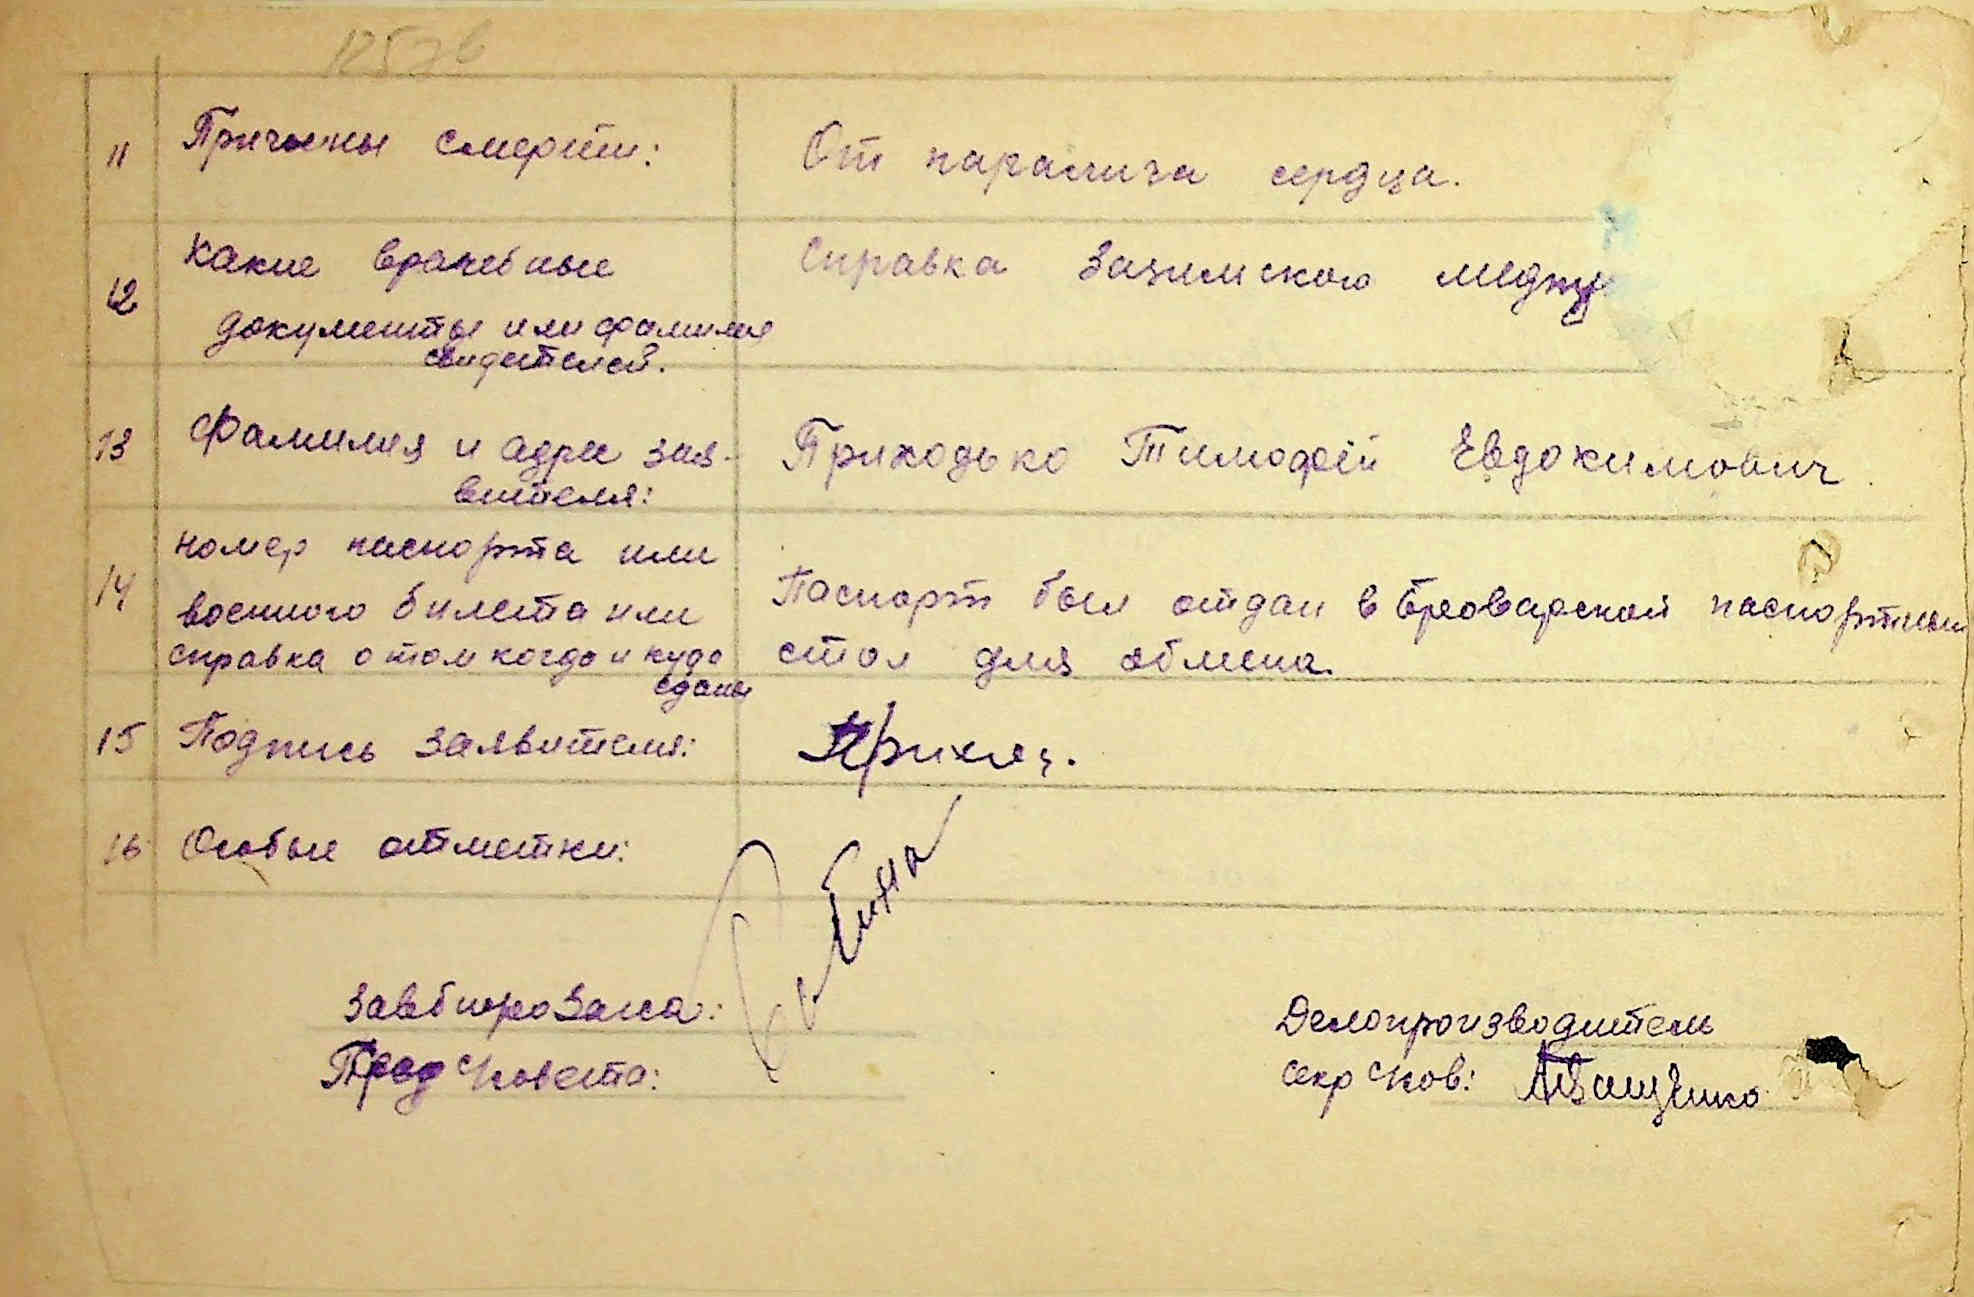 11 Причины смерти: От паралича сердца.
12 Какие врачебные Справка Зазимского медпу
документы или фамилия
свидетелей.
13 Фамилия и адрес зая- Приходько Тимофей Евдокимович
вителя:
14 номер паспорта или
военного билета или Паспорт был отдан в Броварской паспортный
справка о том когда и куда стол для обмена.
сданы
15 Подпись заявителя:
16 Особые отметки:
Завбюро Загса:
Делопроизводитель
Пред с/совета:
секр с/сов: